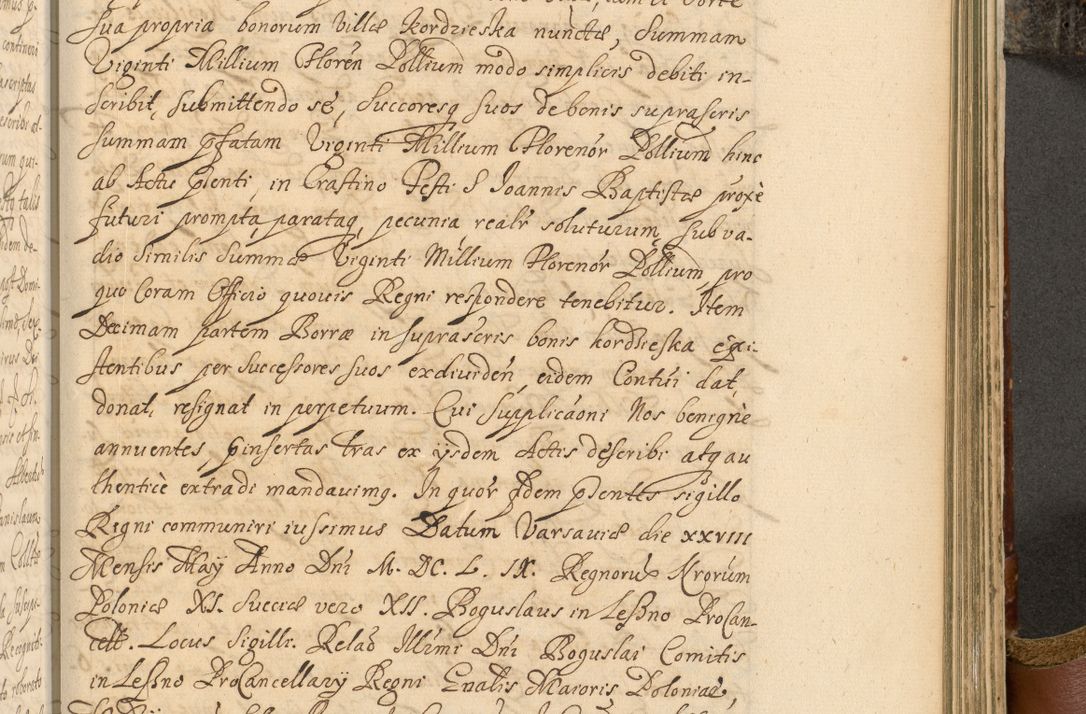 sua propria bonorum Villæ Kordzieska nunctæ, Summam
Viginti Millium Floren Pollium modo simplicis debiti in-
scribit, submittendo se, Succoresq suos de bonis suprascris
summam pfatam Viginti Millium Florenor Pollium hinc
ab Actu pnti, in Crastino Festi S Joannis Baptistæ proxe
futuri prompta, parataq, pecunia realr soluturum, sub va-
dio similis Summæ Viginti Millium Florenor Pollium, pro
quo Coram Officio quovis Regni respondere tenebitur. Item
Decimam partem Borræ in suprascris bonis Kordzieska exi-
stentibus per successores suos exdividen, eidem Contui dat,
donat, resignat in perpetuum. Cui supplicaoni Nos benigne
annuentes, pinsertas tras ex ijsdem Actis describi atq au
thentice extradi mandavimq. In quor fidem pntes sigillo
Regni communiri iussimus Datum Varsaviæ die XXVIII
Mensis May Anno Dni M. DC. L. IX. Regnorum Nrorum
Poloniæ XI. Sueciæ vero XII. Boguslaus in Leßno ProCan-
cell. Locus Sigilli. Relao Illimi Dni Boguslai Comitis
in Leßno ProCancellary Regni Gnalis Maioris Poloniae,